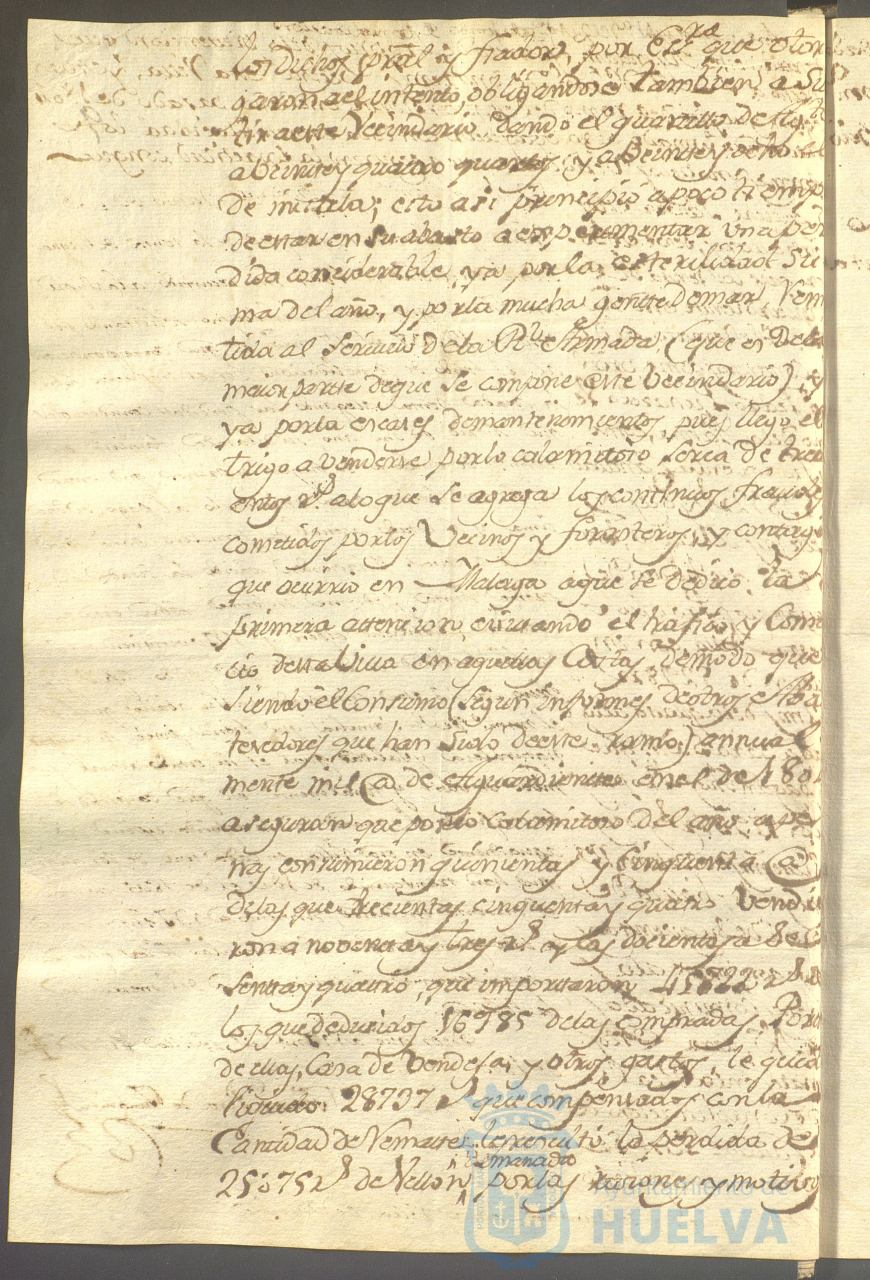 los dichos pral y fiador, por Escra que otor
garon al intento, obligandose tambien a su
tir a este Vecindario, dando el quartillo de
a veinte y quatro quartos, y a veinte y ocho el
de mistela; esto asi principiò a poco tiemp
de estar en su abasto a experimentar una per
dida considerable, ya por la esterilidad su
ma del año, y por la mucha gente de mar,
tida al servicio de la Rl Armada, (que es de la
maior parte de que se compone este Vecindario) y
ya por la escases de mantenimientos, pues llegó el
trigo a venderse por lo calamitoso serca de tres
entos rs. a lo que se agrega los continuos fraudes
cometidos por los Vecinos y forasteros, y contagio
que ocurrio en Malaga a que se dedicò la
primera attencion, evitando el trafico y Comer
cio de esta Villa en aquellas Costas, de modo que
siendo el Consumo (segun informes de otros Abas
tecedores que han sido de este ramo) annual
mente mil @ de Aguardiente en el de 180
aseguran que por lo calamitoso del año ape
nas consumieron quinientas y cinquenta @
de las que trecientas cinquenta y quatro vendie
ron a noventa y tres rs. y las docientas a
senta y quatro, que importaron 45722 rs.
los que deducidos 16985 de las compradas, Porte
de ellas, Casa de Vendeja, y otros gastos, le queda
liquido 28737 rs que compensados con la
Cantidad de Remates, le resultó la perdida de
25075 rs. de Vellon manado por las rasones y motivos
Ayuntamiento de
HUELVA